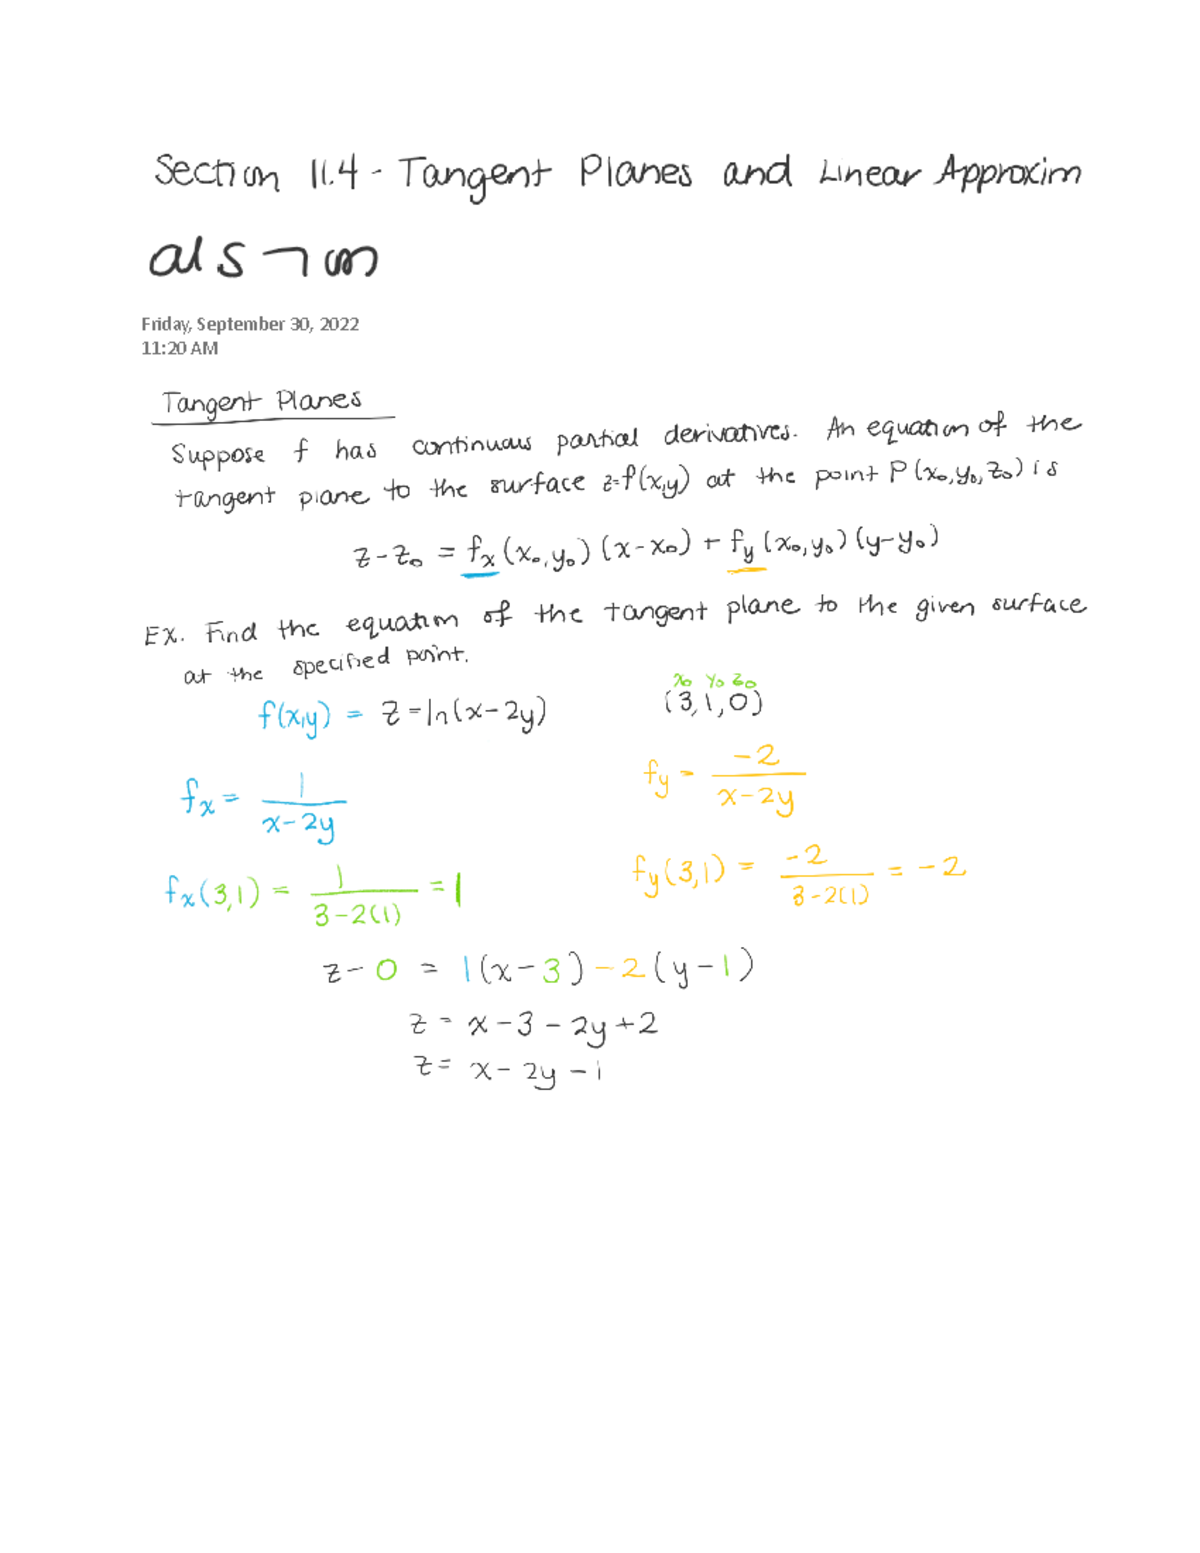 Section 11.4 - Tangent Planes and Linear Approxim
Friday, September 30, 2022
11:20 AM
Tangent Planes
Suppose f has continuous partial derivatives. An equation of the
tangent plane to the surface z=f(x,y) at the point P(x₀,y₀,z₀) is
z-z₀ = fₓ(x₀,y₀)(x-x₀) + f_y(x₀,y₀)(y-y₀)
EX. Find the equation of the tangent plane to the given surface
at the specified point.
x₀ y₀ z₀
f(x,y) = z=ln(x-2y) (3,1,0)
fₓ = 1/(x-2y) f_y = -2/(x-2y)
fₓ(3,1) = 1/(3-2(1)) = 1 f_y(3,1) = -2/(3-2(1)) = -2
z-0 = 1(x-3)-2(y-1)
z = x-3-2y+2
z = x-2y-1